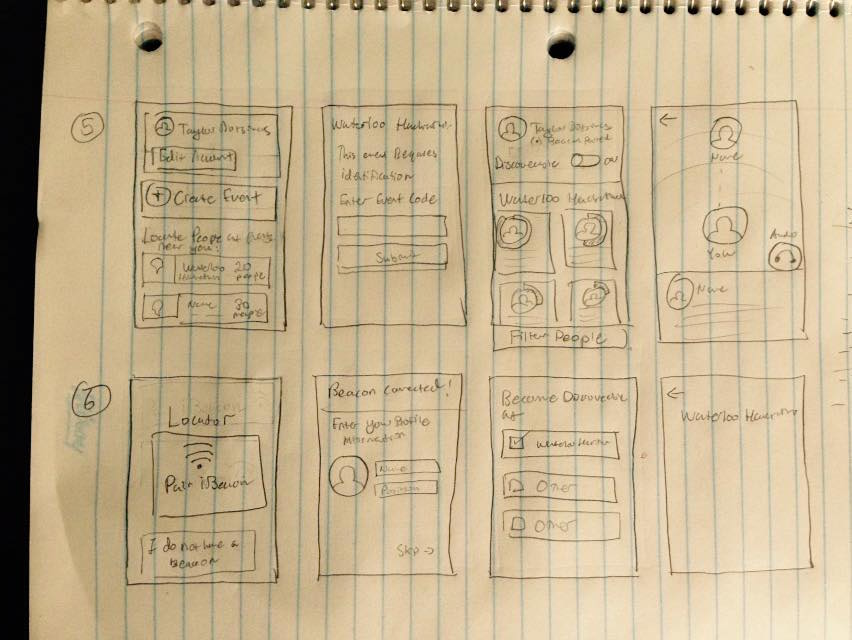 5
Taylor
Edit Account
+ Create Event
Locate People at
near you:
Waterloo 20
people
Name 30
people
Waterloo
This event Requires
identification
Enter Event Code
Submit
Taylor
Beacon Paired
Discoverable ON
Waterloo
Filter People
←
Name
You
Audio
Name
6
Locator
Pair iBeacon
I do not have a
Beacon
Beacon Connected!
Enter your Profile
information
Name
Position
Skip →
Become Discoverable
at
Waterloo
Other
Other
←
Waterloo